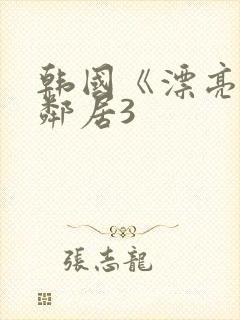 韩国《漂亮
鄰居3
張志龍